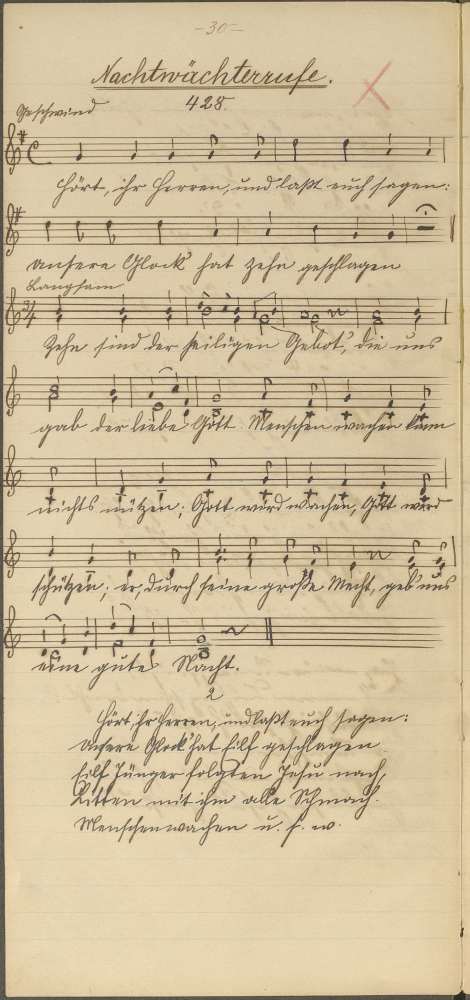 -30-
Nachtwächterrufe.
428.
Geschwind
Hört, ihr Herren, und laßt euch sagen:
Unsere Glock' hat zehn geschlagen
Langsam
3/4
Zehn sind der heiligen Gebot', die uns
gab der liebe Gott. Menschenwachen kann
nichts nützen; Gott wird wachen, Gott wird
schützen; er, durch seine große Macht, geb' uns
eine gute Nacht.
2
Hört, ihr Herren, und laßt euch sagen:
Unsere Glock' hat eilf geschlagen
Eilf Jünger folgten Jesu nach,
Litten mit ihm alle Schmach.
Menschenwachen u. s. w.